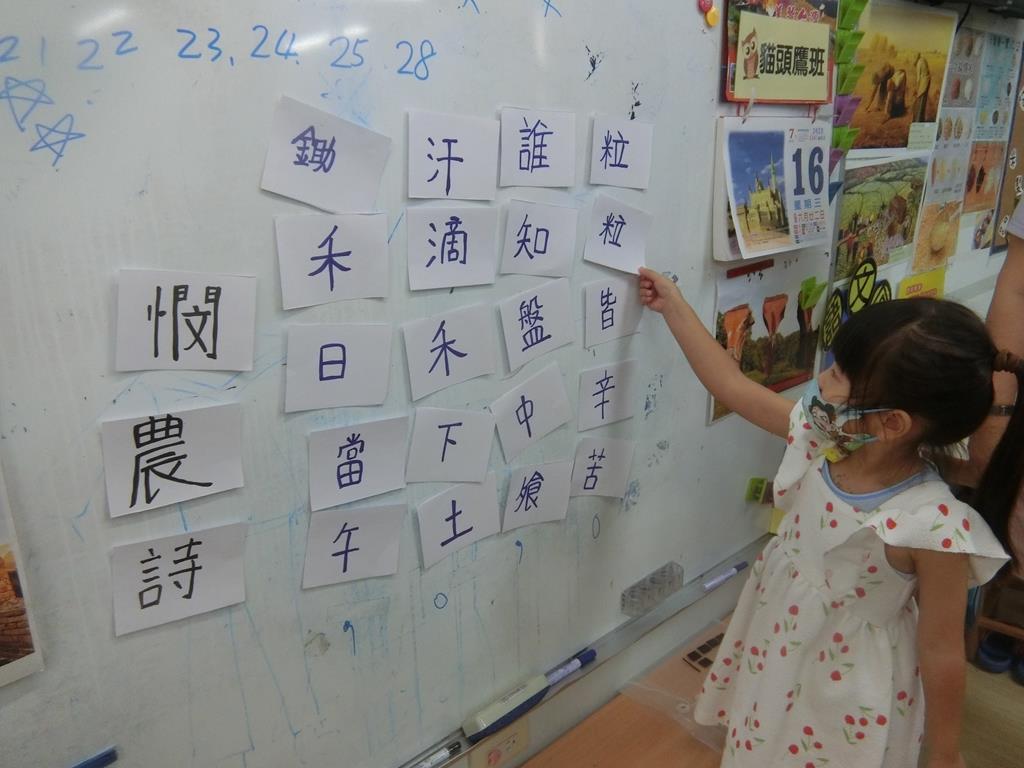 21 22 23, 24 25 28
憫農詩
鋤禾日當午
汗滴禾下土
誰知盤中飱
粒粒皆辛苦
貓頭鷹班
7
16
星期三
六月廿二日